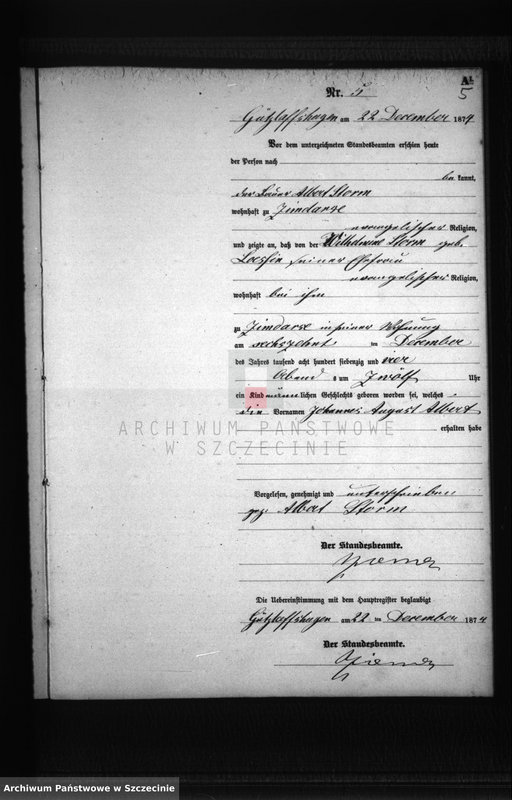 A1.
5
Nr. 5
Gützlaffshagen am 22 December 1874
Vor dem unterzeichneten Standesbeamten erschien heute
der Person nach
be kannt,
der Bauer Albert Storm
wohnhaft zu Zimdarse
evangelischer Religion,
und zeigte an, daß von der Wilhelmine Storm geb.
seiner Ehefrau
evangelischer Religion,
wohnhaft bei ihm
zu Zimdarse in seiner Wohnung
am sechszehnt en December
des Jahres tausend acht hundert siebenzig und vier
Abend s um Zwölf Uhr
ein Kind männ lichen Geschlechts geboren worden sei, welches
die Vornamen Johannes August Albert
erhalten habe
ARCHIWUM PAŃSTWOWE
W SZCZECINIE
Vorgelesen, genehmigt und unterschrieben
gez. Albert Storm
Der Standesbeamte.
Die Uebereinstimmung mit dem Hauptregister beglaubigt
Gützlaffshagen am 22 ten December 1874
Der Standesbeamte.
Archiwum Państwowe w Szczecinie